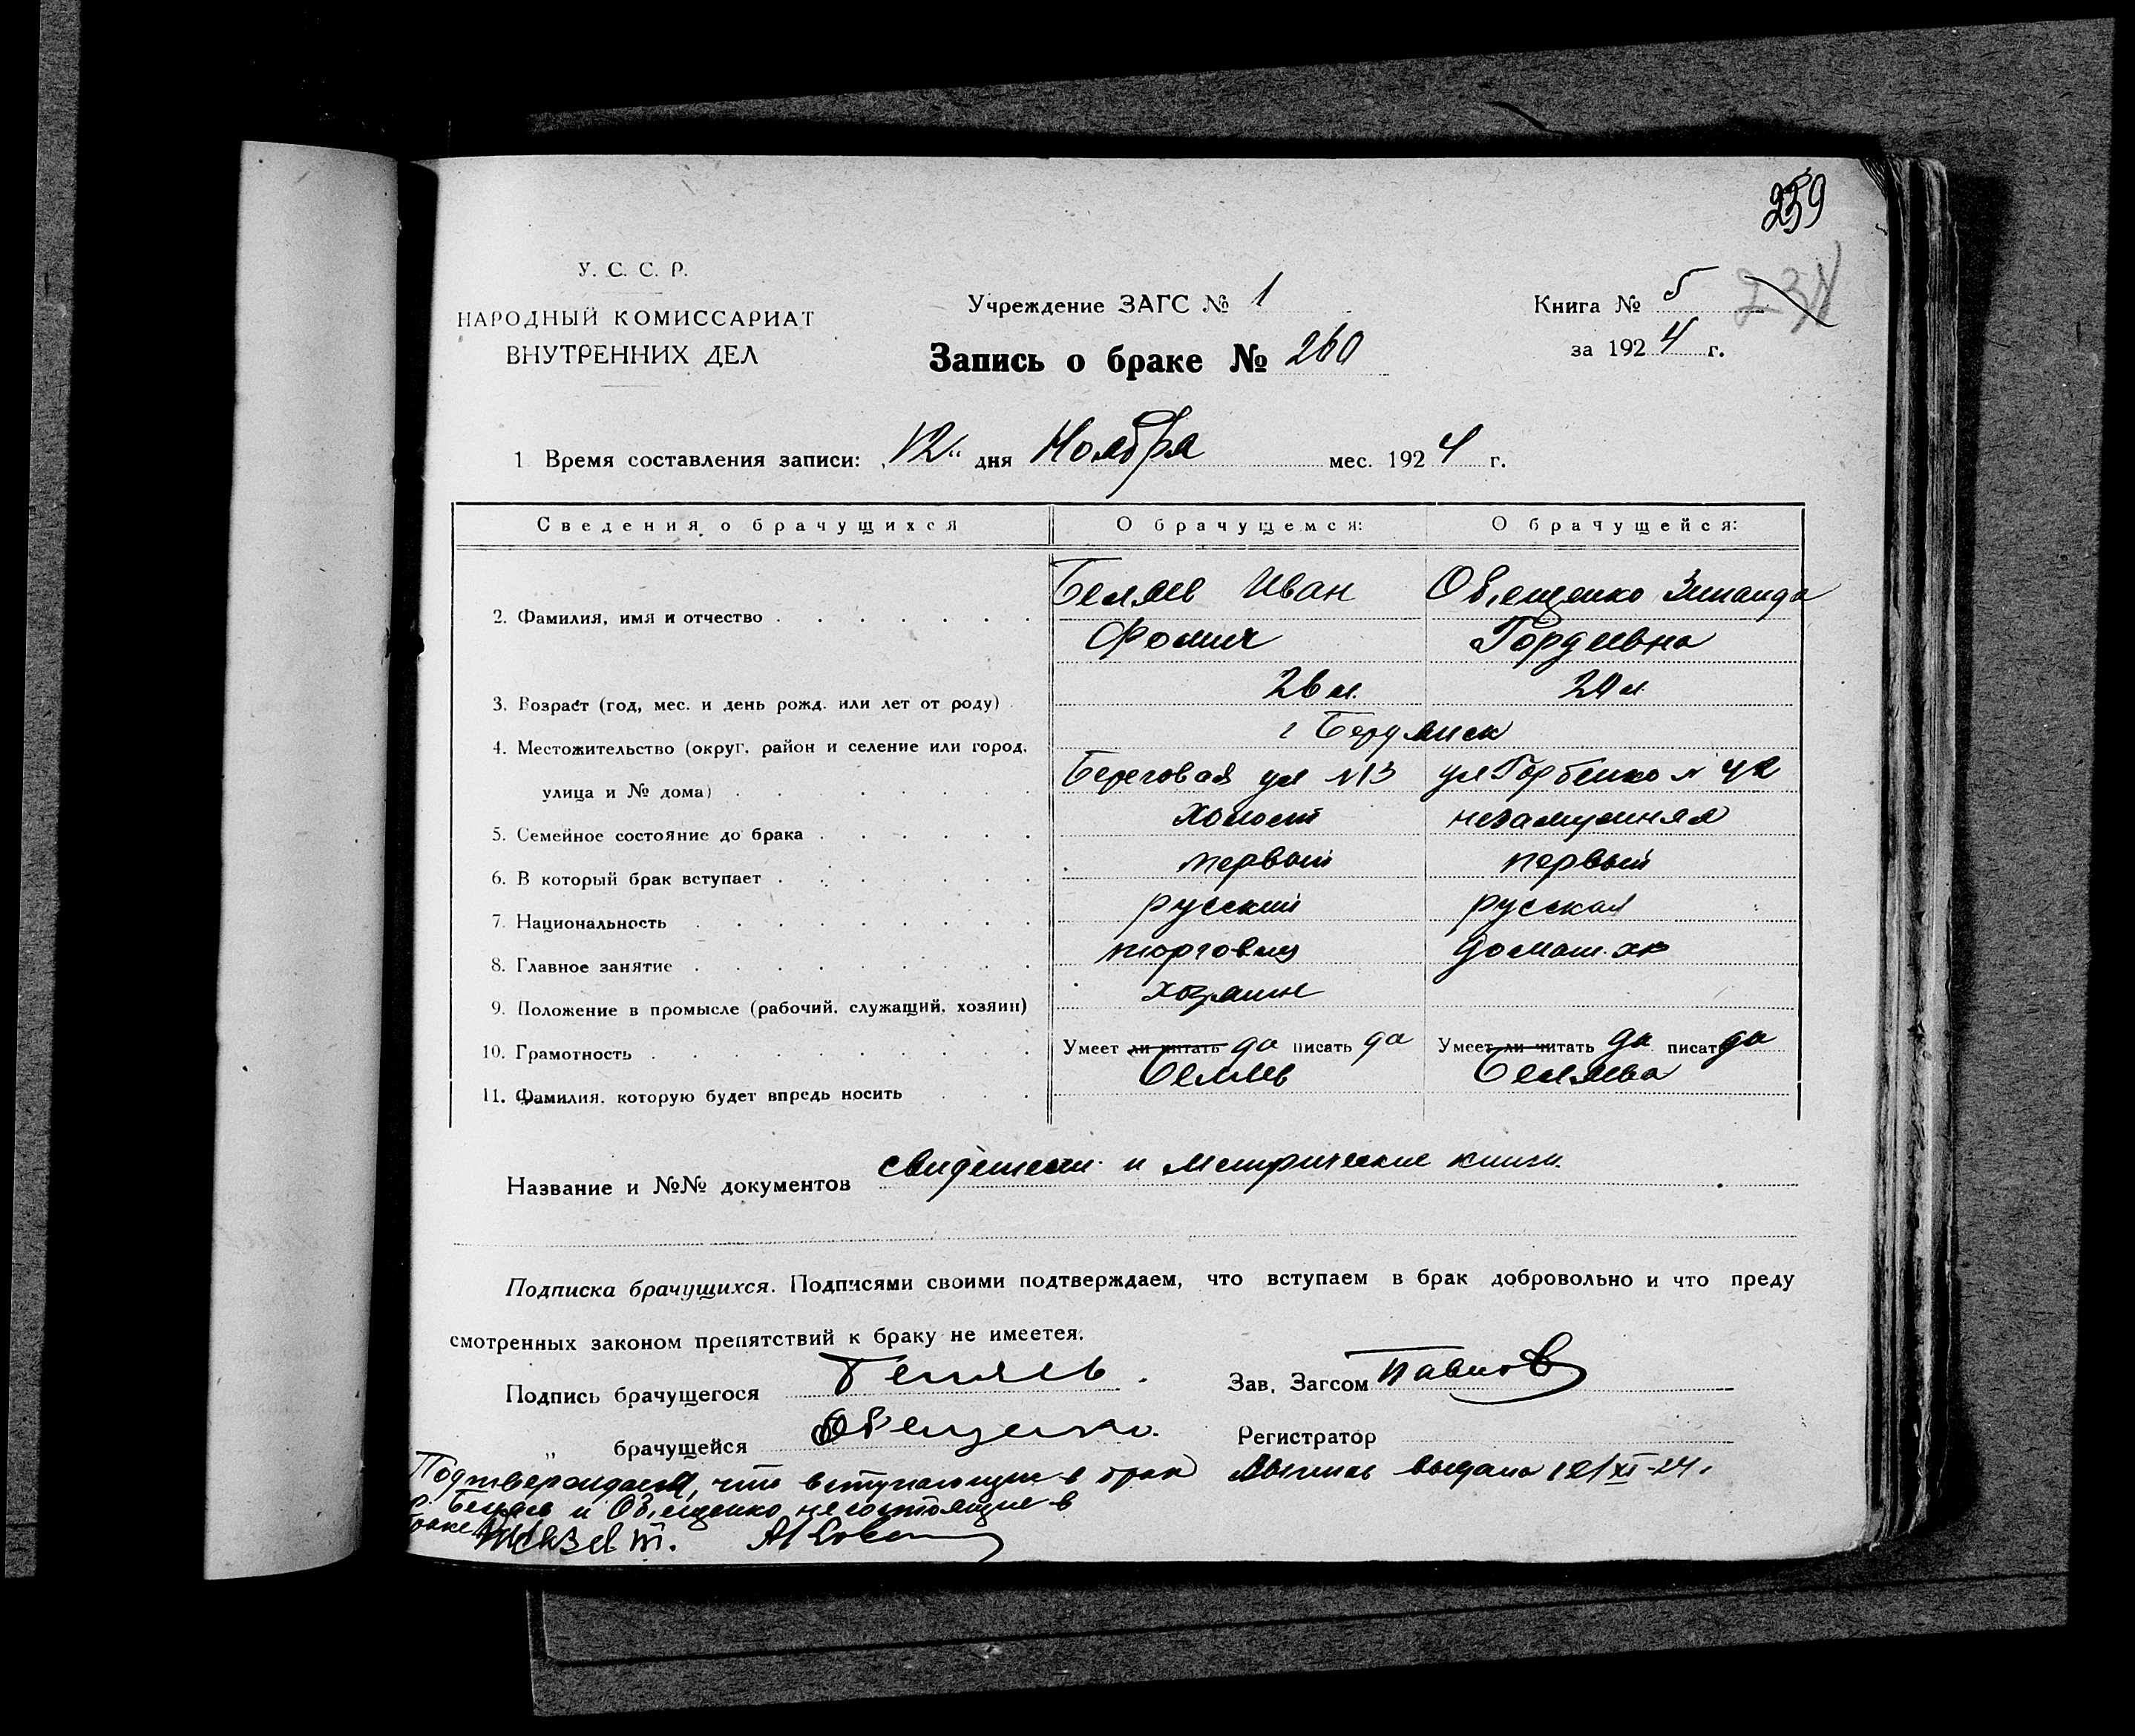 239
У. С. С. Р.
НАРОДНЫЙ КОМИССАРИАТ
ВНУТРЕННИХ ДЕЛ
Учреждение ЗАГС № 1
Запись о браке № 260
Книга № 5
за 1924 г.
1 Время составления записи: „12“ дня Ноября мес. 1924 г.
Сведения о брачущихся О брачущемся: О брачущейся:
2. Фамилия, имя и отчество Беляев Иван Об,ещенко Зинаида
Фомич Гордеевна
3. Возраст (год, мес. и день рожд. или лет от роду) 26 л. 20 л.
4. Местожительство (округ, район и селение или город, г Бердянск
улица и № дома) Береговая ул №13 ул Горбенко №42
5. Семейное состояние до брака холост незамужняя
6. В который брак вступает первый первый
7. Национальность русский русская
8. Главное занятие торговец домаш. хоз
9. Положение в промысле (рабочий, служащий, хозяин) хозяин
10. Грамотность Умеет ли читать да писать да Умеет ли читать да писать да
11. Фамилия, которую будет впредь носить Беляев Беляева
Название и №№ документов свидетели и метрические книги.
Подписка брачущихся. Подписями своими подтверждаем, что вступаем в брак добровольно и что преду
смотренных законом препятствий к браку не имеется.
Подпись брачущегося Беляев. Зав. Загсом Павлов
„ брачущейся Обещенко. Регистратор
Подтверждаем, что вступающие в брак Выпись выдана 12/XI-24.
Беляев и Об,ещенко не состоящие в
браке